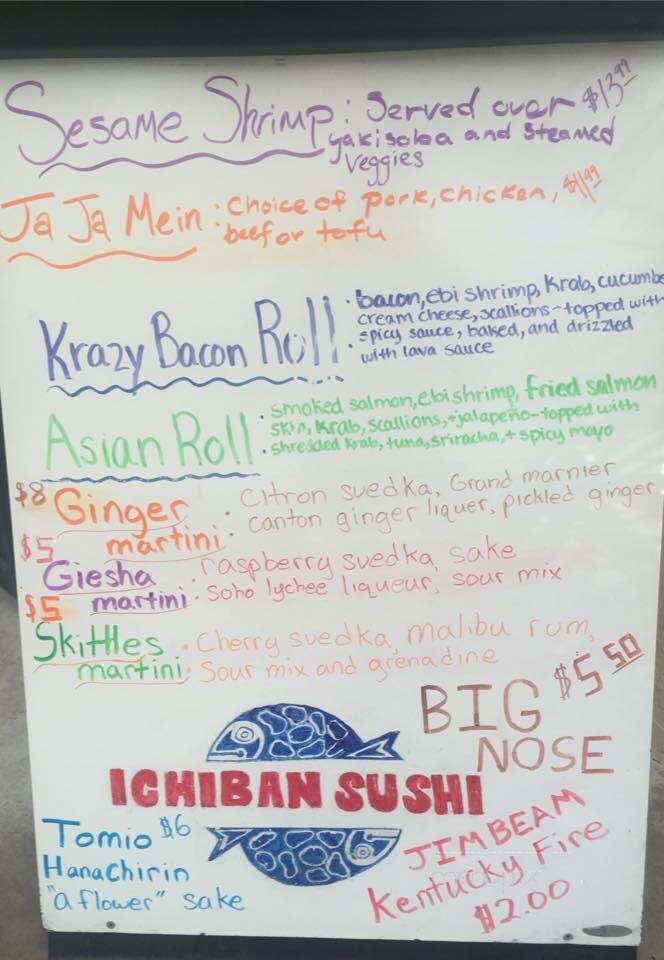 Sesame Shrimp: Served over $13.99
yakisoba and Steamed
Veggies
Ja Ja Mein: Choice of Pork, chicken, $11.99
beef or tofu
Krazy Bacon Roll
• bacon, ebi shrimp, Krab, cucumbe
cream cheese, scallions-topped with
• spicy sauce, baked, and drizzled
with lava sauce
Asian Roll
• smoked salmon, ebi shrimp, fried salmon
skin, Krab, scallions, + jalapeño-topped with
• shredded Krab, tuna, sriracha, + spicy mayo
$8 Ginger martini
• Citron svedka, Grand marnier
• canton ginger liquer, pickled ginger
$5 Giesha martini
• raspberry svedka, sake
• Soho lychee liqueur, sour mix
$5 Skittles martini
• Cherry svedka, malibu rum,
• Sour mix and grenadine
BIG $5.50
NOSE
ICHIBAN SUSHI
Tomio $6
Hanachirin
"a flower" sake
JIM BEAM
Kentucky Fire
$2.00